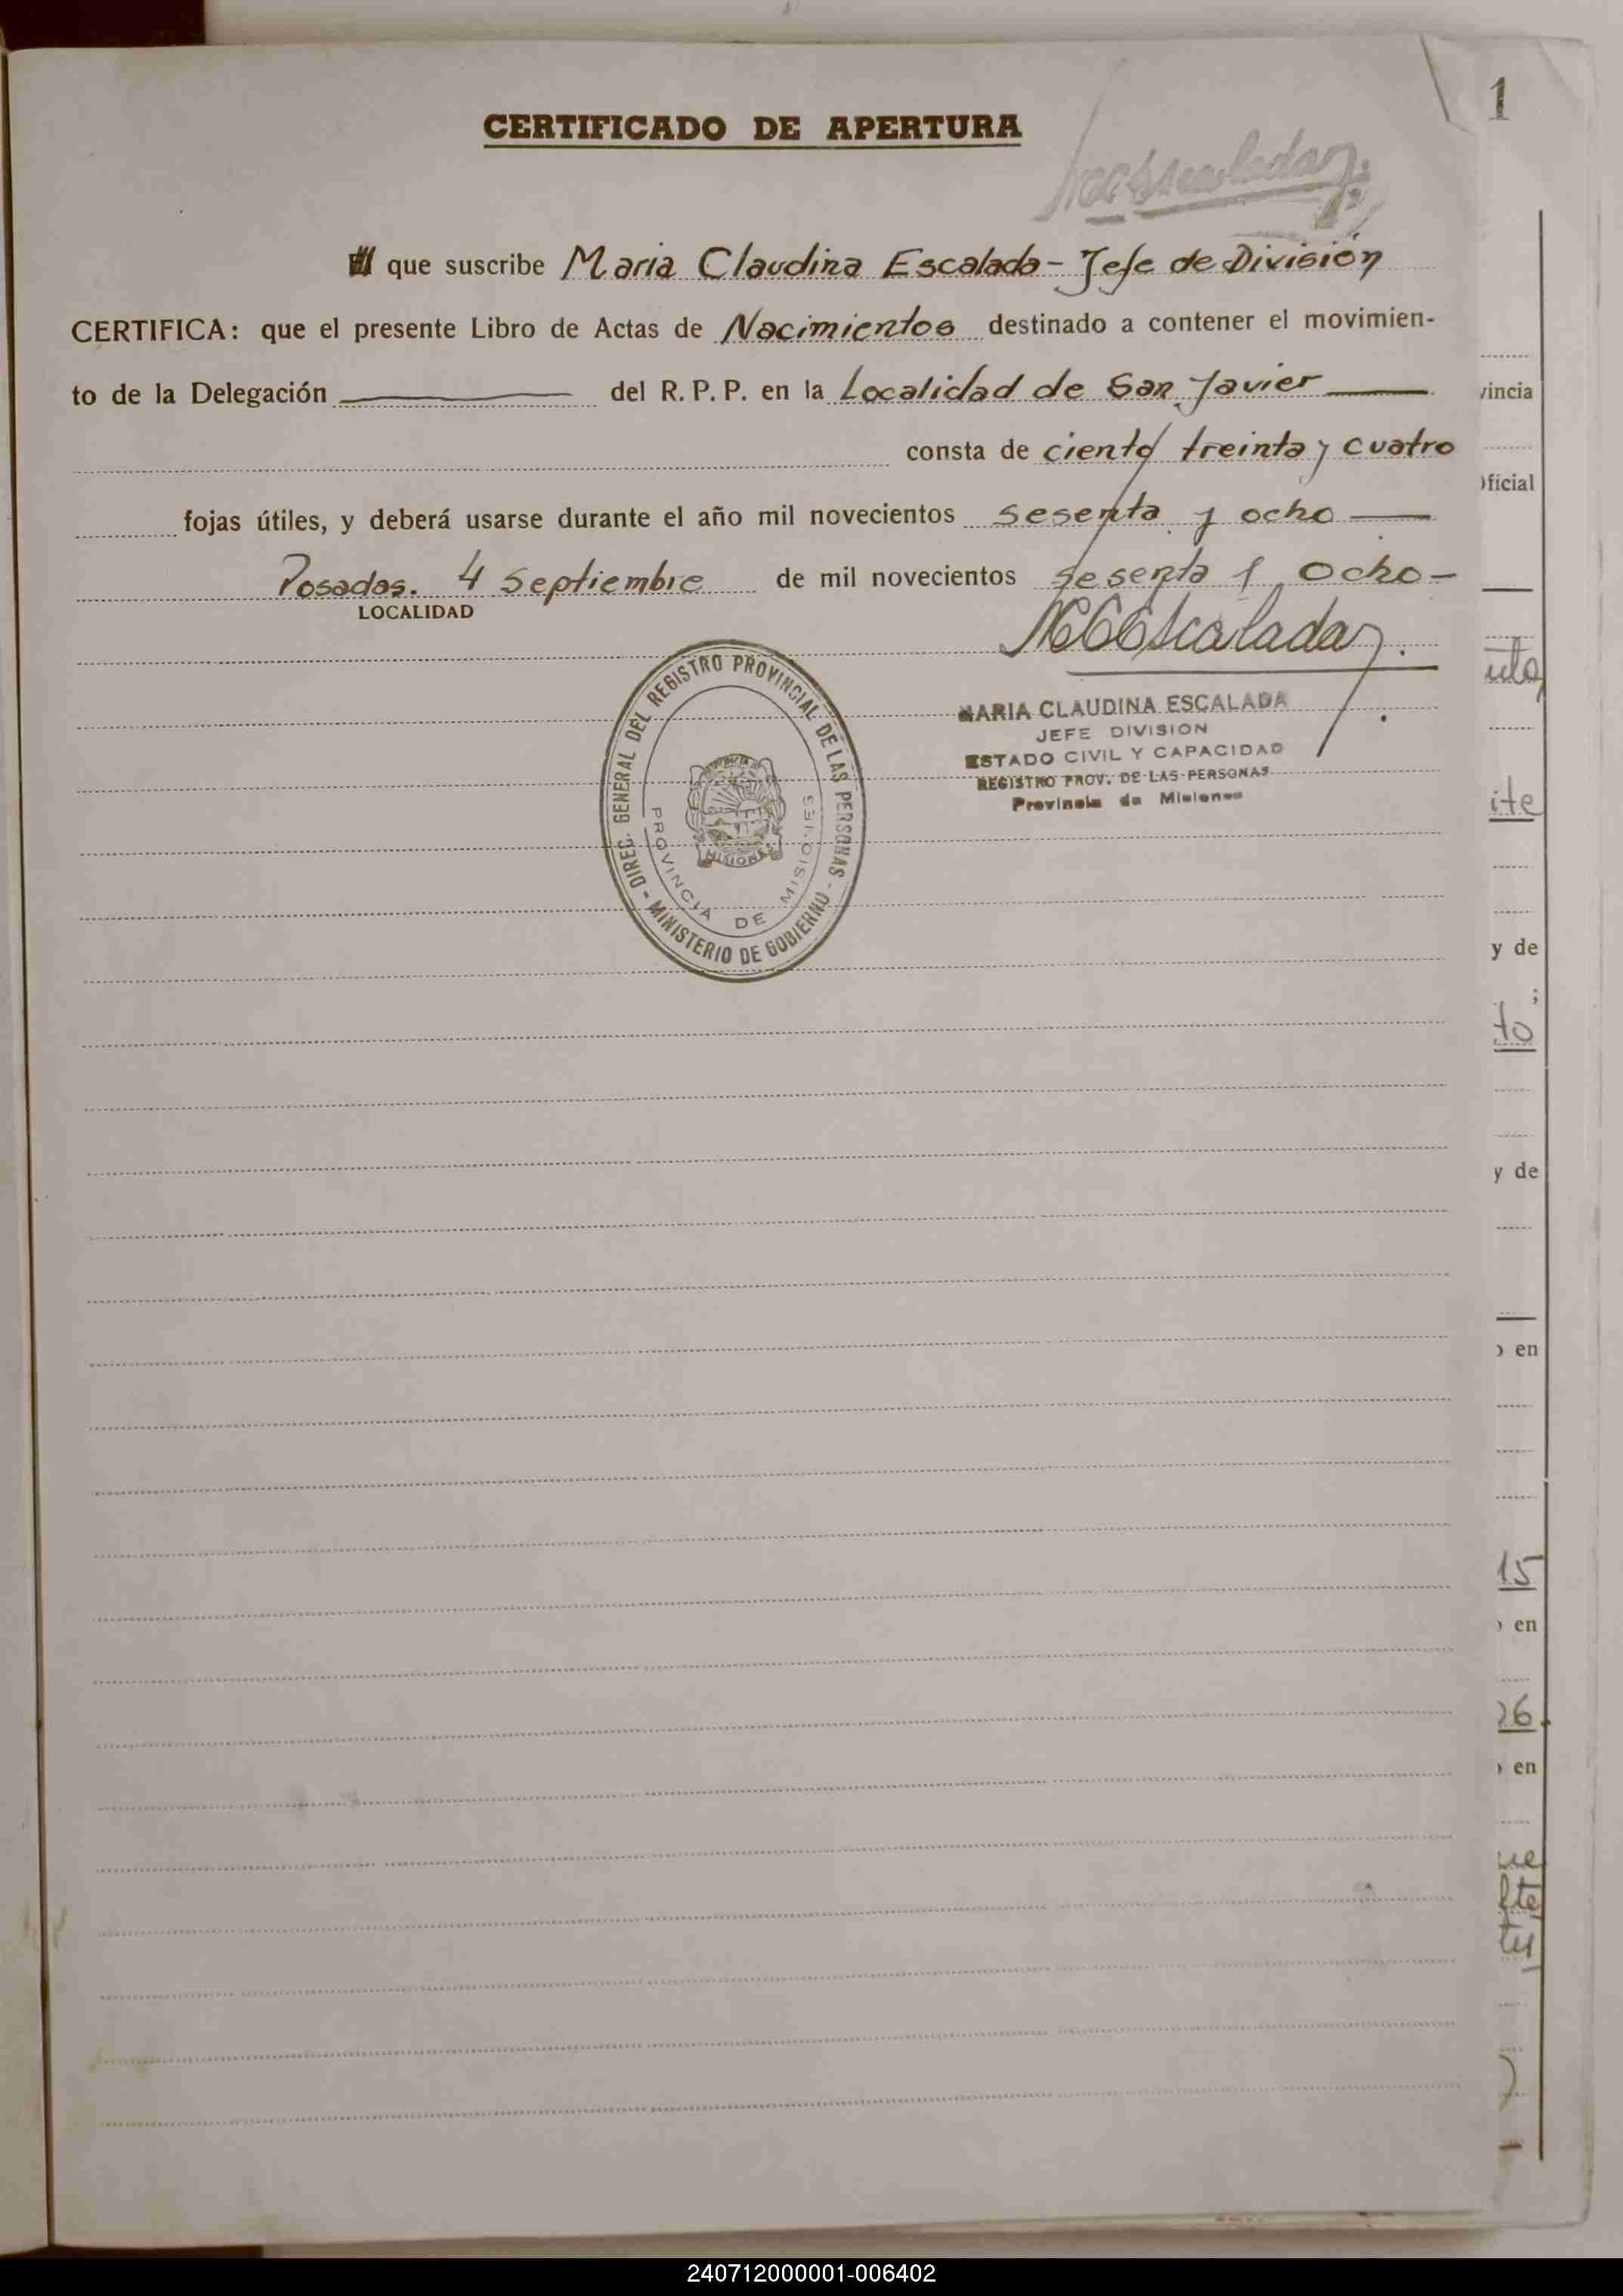 1
CERTIFICADO DE APERTURA
El que suscribe Maria Claudina Escalada - Jefe de División
CERTIFICA: que el presente Libro de Actas de Nacimientos destinado a contener el movimien-
to de la Delegación del R. P. P. en la Localidad de San Javier
consta de ciento treinta y cuatro
fojas útiles, y deberá usarse durante el año mil novecientos sesenta y ocho
Posadas. 4 Septiembre de mil novecientos sesenta y ocho -
LOCALIDAD
MCEscalada
MARIA CLAUDINA ESCALADA
JEFE DIVISION
ESTADO CIVIL Y CAPACIDAD
REGISTRO PROV. DE LAS PERSONAS
Provincia de Misiones
DIREC. GENERAL DEL REGISTRO PROVINCIAL DE LAS PERSONAS - MINISTERIO DE GOBIERNO -
PROVINCIA DE MISIONES
MISIONES
vincia
Oficial
ite
y de
to
y de
en
15
en
26.
en
240712000001-006402